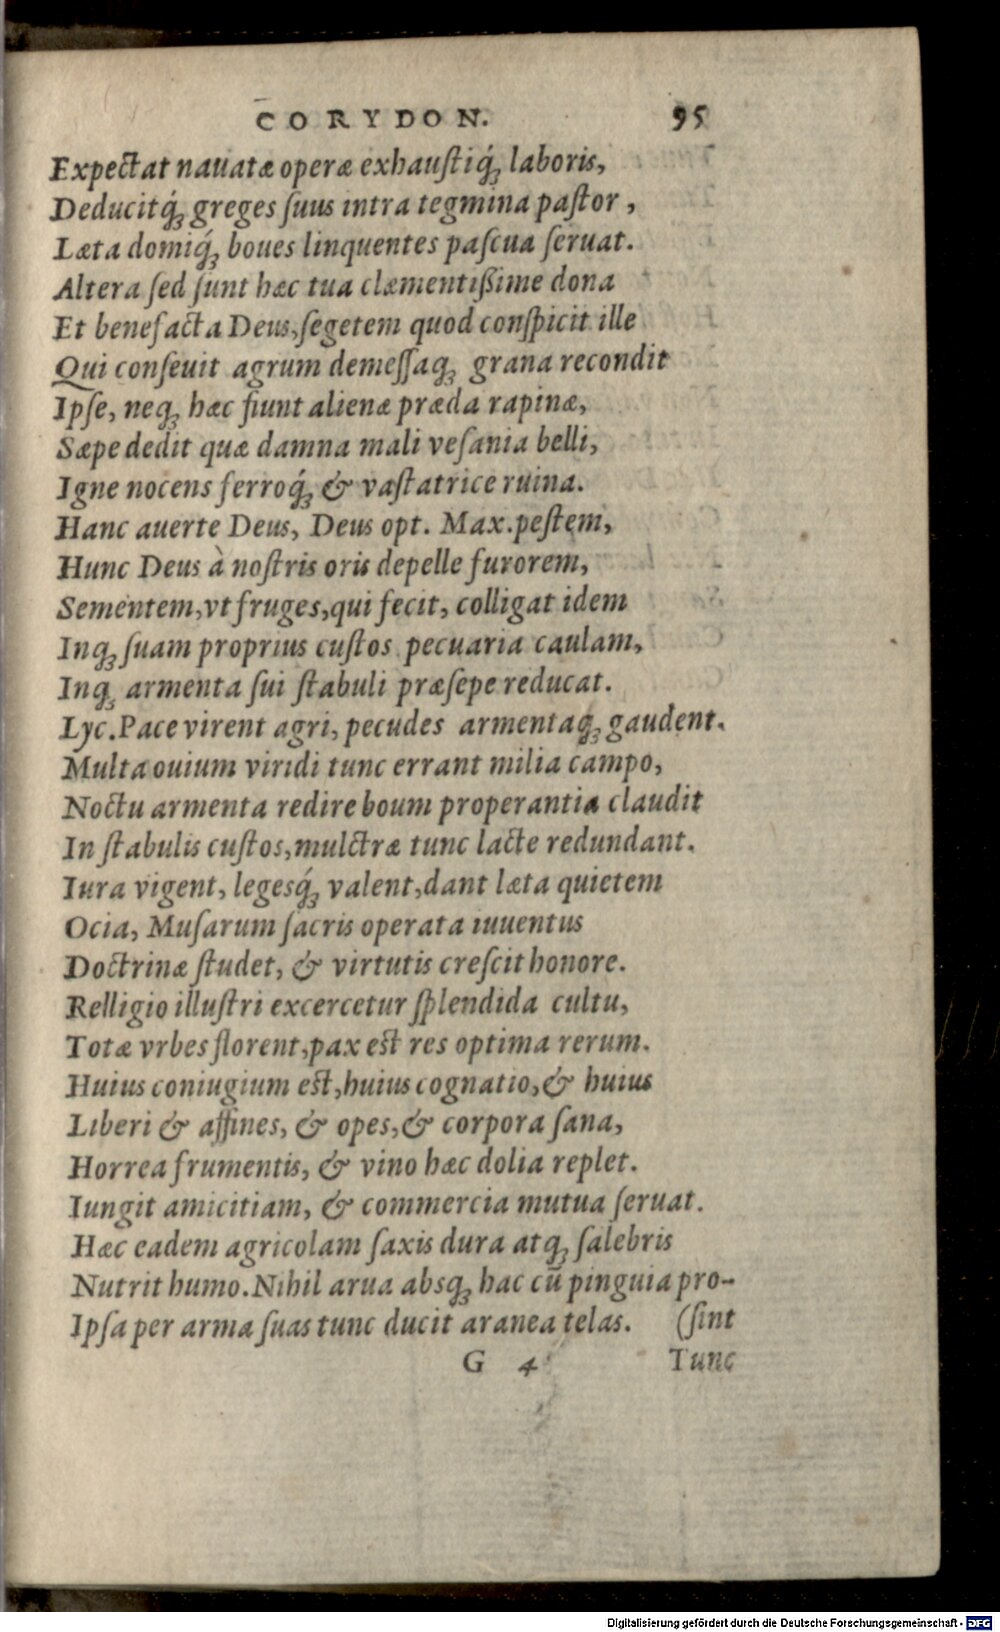 CORYDON. 95
Expectat nauatæ operæ exhaustiq́ꝫ laboris,
Deducitq́ꝫ greges suus intra tegmina pastor,
Læta domiq́ꝫ boues linquentes pascua seruat.
Altera sed sunt hæc tua clæmentißime dona
Et benefacta Deus, segetem quod conspicit ille
Qui conseuit agrum demessaqꝫ grana recondit
Ipse, neqꝫ hæc fiunt alienæ præda rapinæ,
Sæpe dedit quæ damna mali vesania belli,
Igne nocens ferroq́ꝫ & vastatrice ruina.
Hanc auerte Deus, Deus opt. Max. pestem,
Hunc Deus à nostris oris depelle furorem,
Sementem, vt fruges, qui fecit, colligat idem
Inqꝫ suam proprius custos pecuaria caulam,
Inqꝫ armenta sui stabuli præsepe reducat.
Lyc. Pace virent agri, pecudes armentaqꝫ gaudent.
Multa ouium viridi tunc errant milia campo,
Noctu armenta redire boum properantia claudit
In stabulis custos, mulctræ tunc lacte redundant.
Iura vigent, legesq́ꝫ valent, dant læta quietem
Ocia, Musarum sacris operata iuuentus
Doctrinæ studet, & virtutis crescit honore.
Relligio illustri excercetur splendida cultu,
Totæ vrbes florent, pax est res optima rerum.
Huius coniugium est, huius cognatio, & huius
Liberi & affines, & opes, & corpora sana,
Horrea frumentis, & vino hæc dolia replet.
Iungit amicitiam, & commercia mutua seruat.
Hæc eadem agricolam saxis dura atqꝫ salebris
Nutrit humo. Nihil arua absqꝫ hac cū pinguia pro-
Ipsa per arma suas tunc ducit aranea telas. (sint
G 4 Tunc
Digitalisierung gefördert durch die Deutsche Forschungsgemeinschaft - DFG